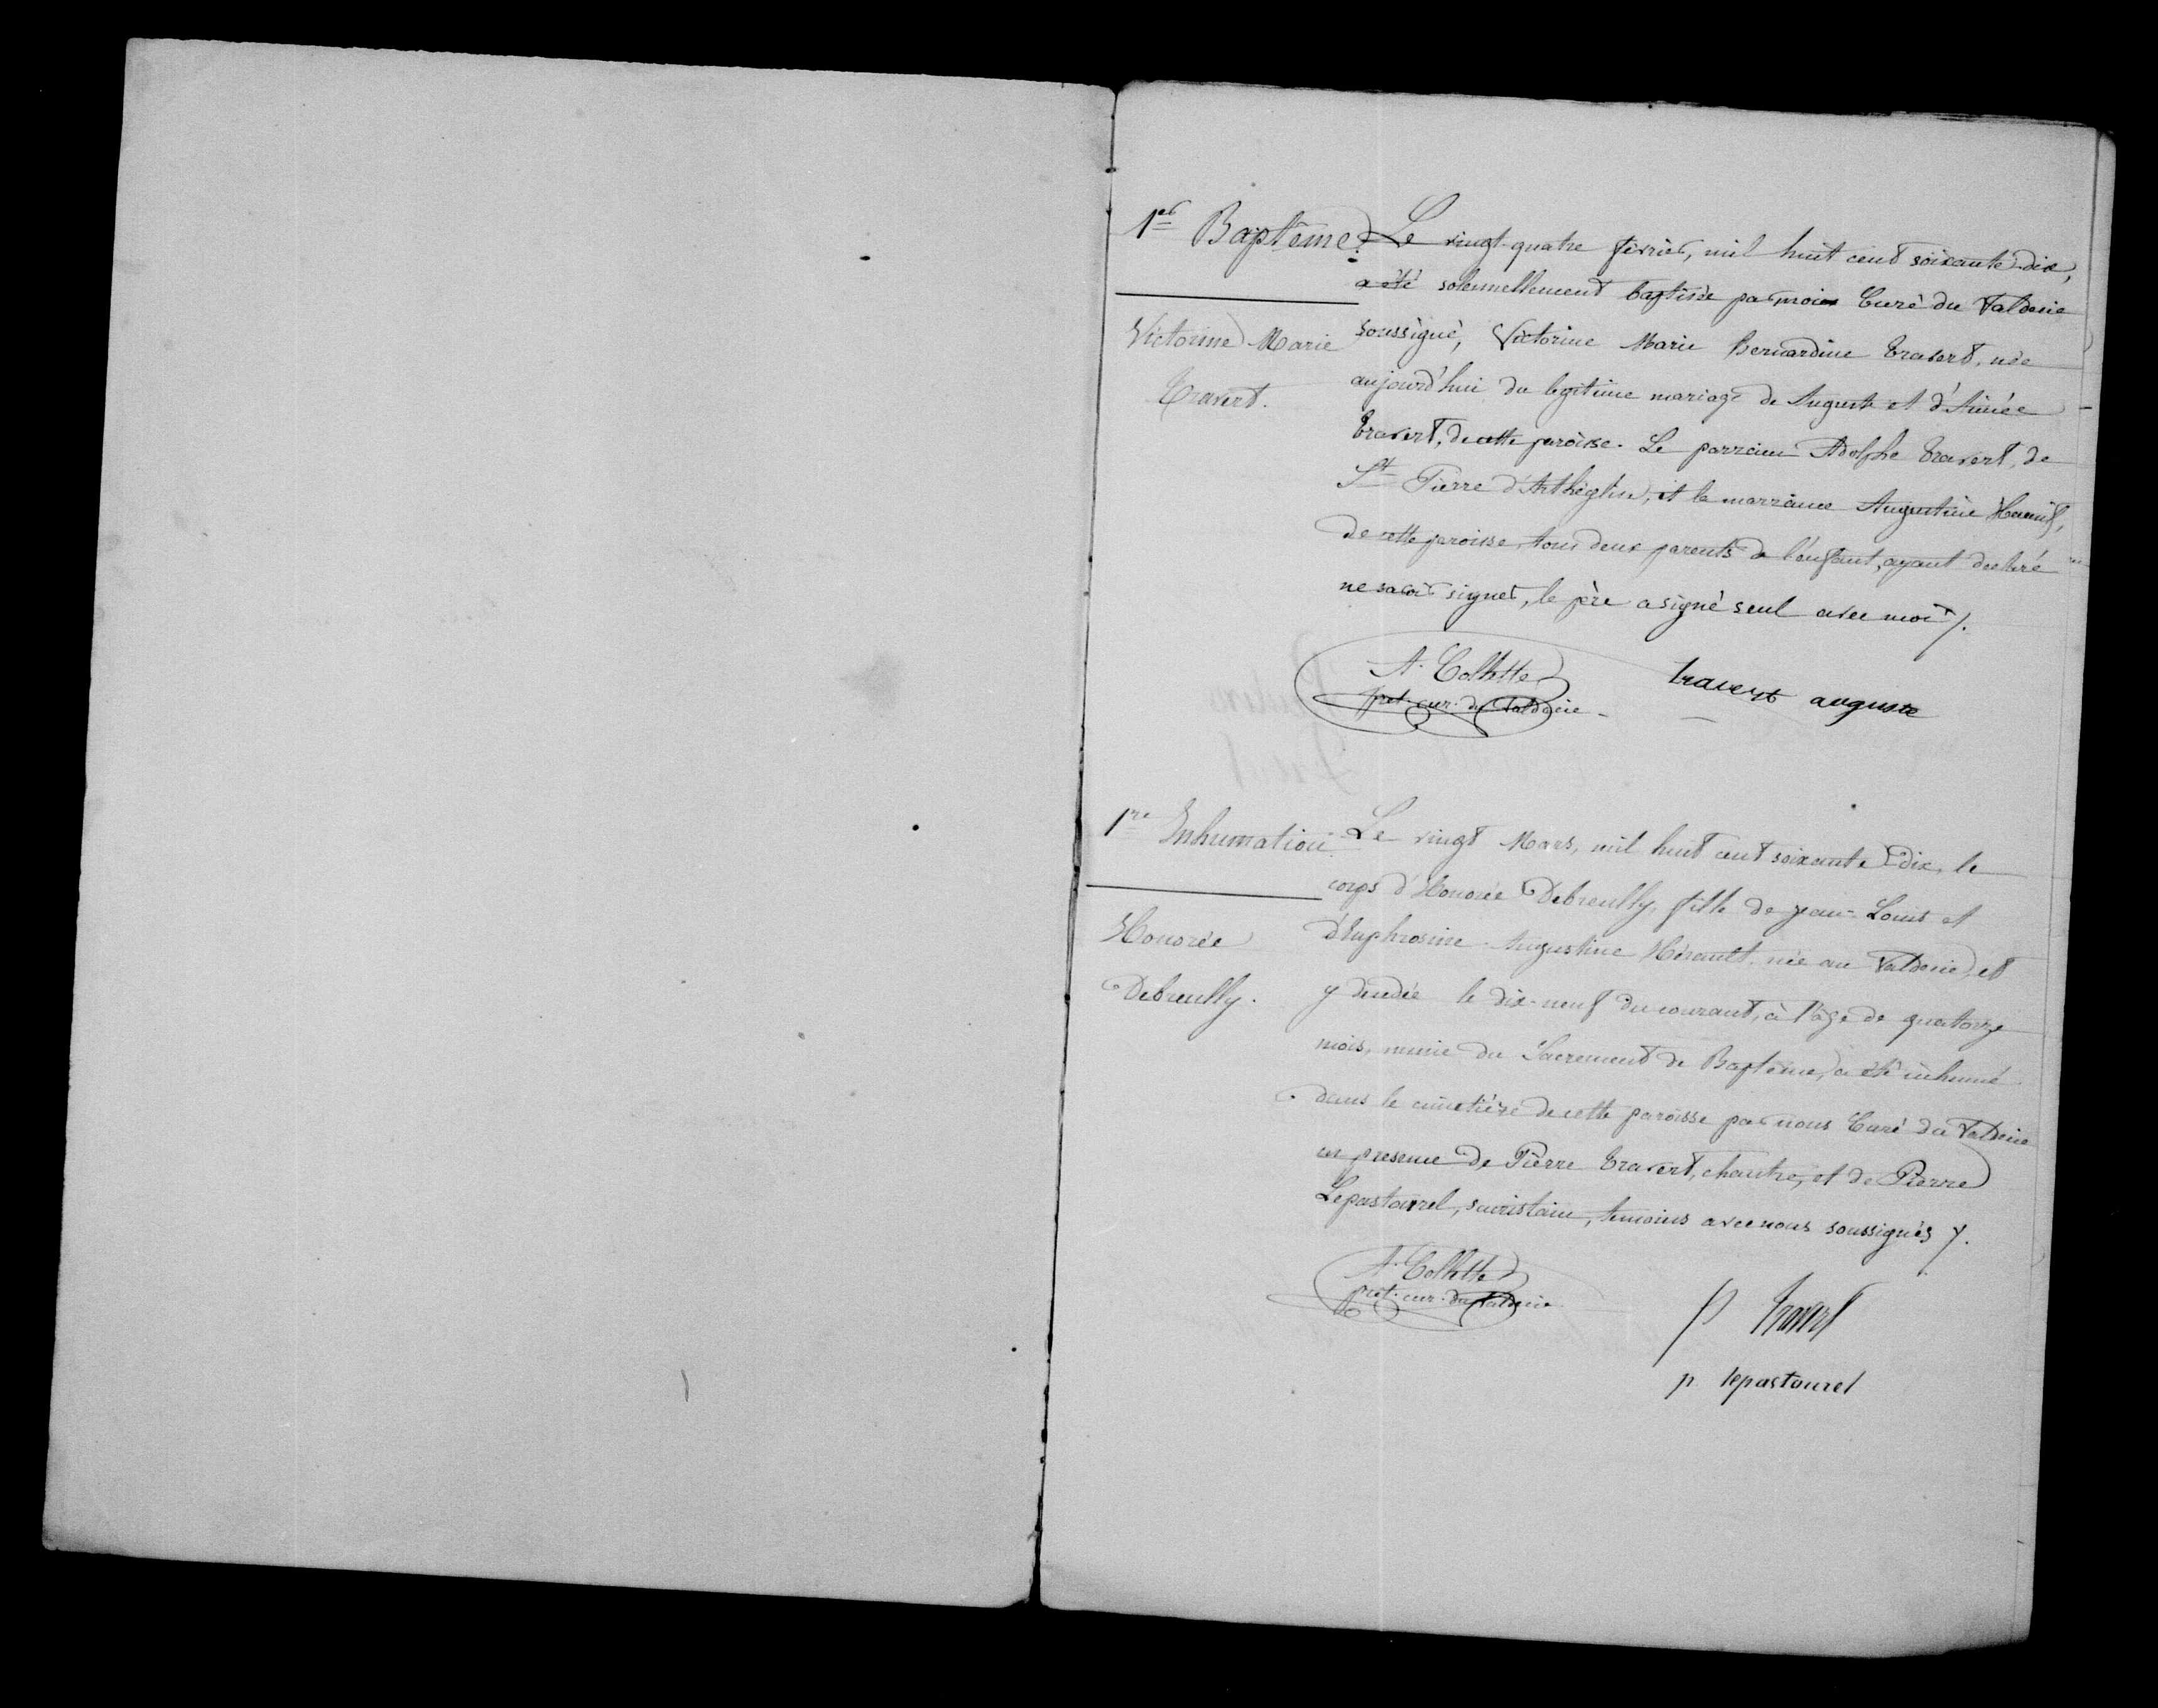 1er Baptême.
Victorine Marie
Travert.
Le vingt-quatre février, mil huit cent soixante-dix,
a été solennellement baptisée par moi Curé du Valdecie
soussigné, Victorine Marie Bernardine Travert, née
aujourd'hui du légitime mariage de Auguste et d'Aimée
Travert, de cette paroisse. Le parrain Adolphe Travert, de
St Pierre d'Arthéglise, et la marraine Augustine
de cette paroisse, tous deux parents de l'enfant, ayant déclaré
ne savoir signer, le père a signé seul avec moi /.
A. Collette
pret. cur. du Valdecie
travert auguste
1re Inhumation.
Honorée
Debreuilly.
Le vingt Mars, mil huit cent soixante-dix, le
corps d'Honorée Debreuilly, fille de jean-Louis et
d'Euphrosine Augustine Hérault, née au Valdecie, et
y décédée le dix-neuf du courant, à l'âge de quatorze
mois, munie du Sacrement de Baptême, a été inhumé
dans le cimetière de cette paroisse par nous Curé du Valdecie
en presence de Pierre Travert, chantre, et de Pierre
Lepastourel, sacristain, témoins avec nous soussignés /.
A. Collette
pret. cur. du Valdecie
P Travert
p. lepastourel